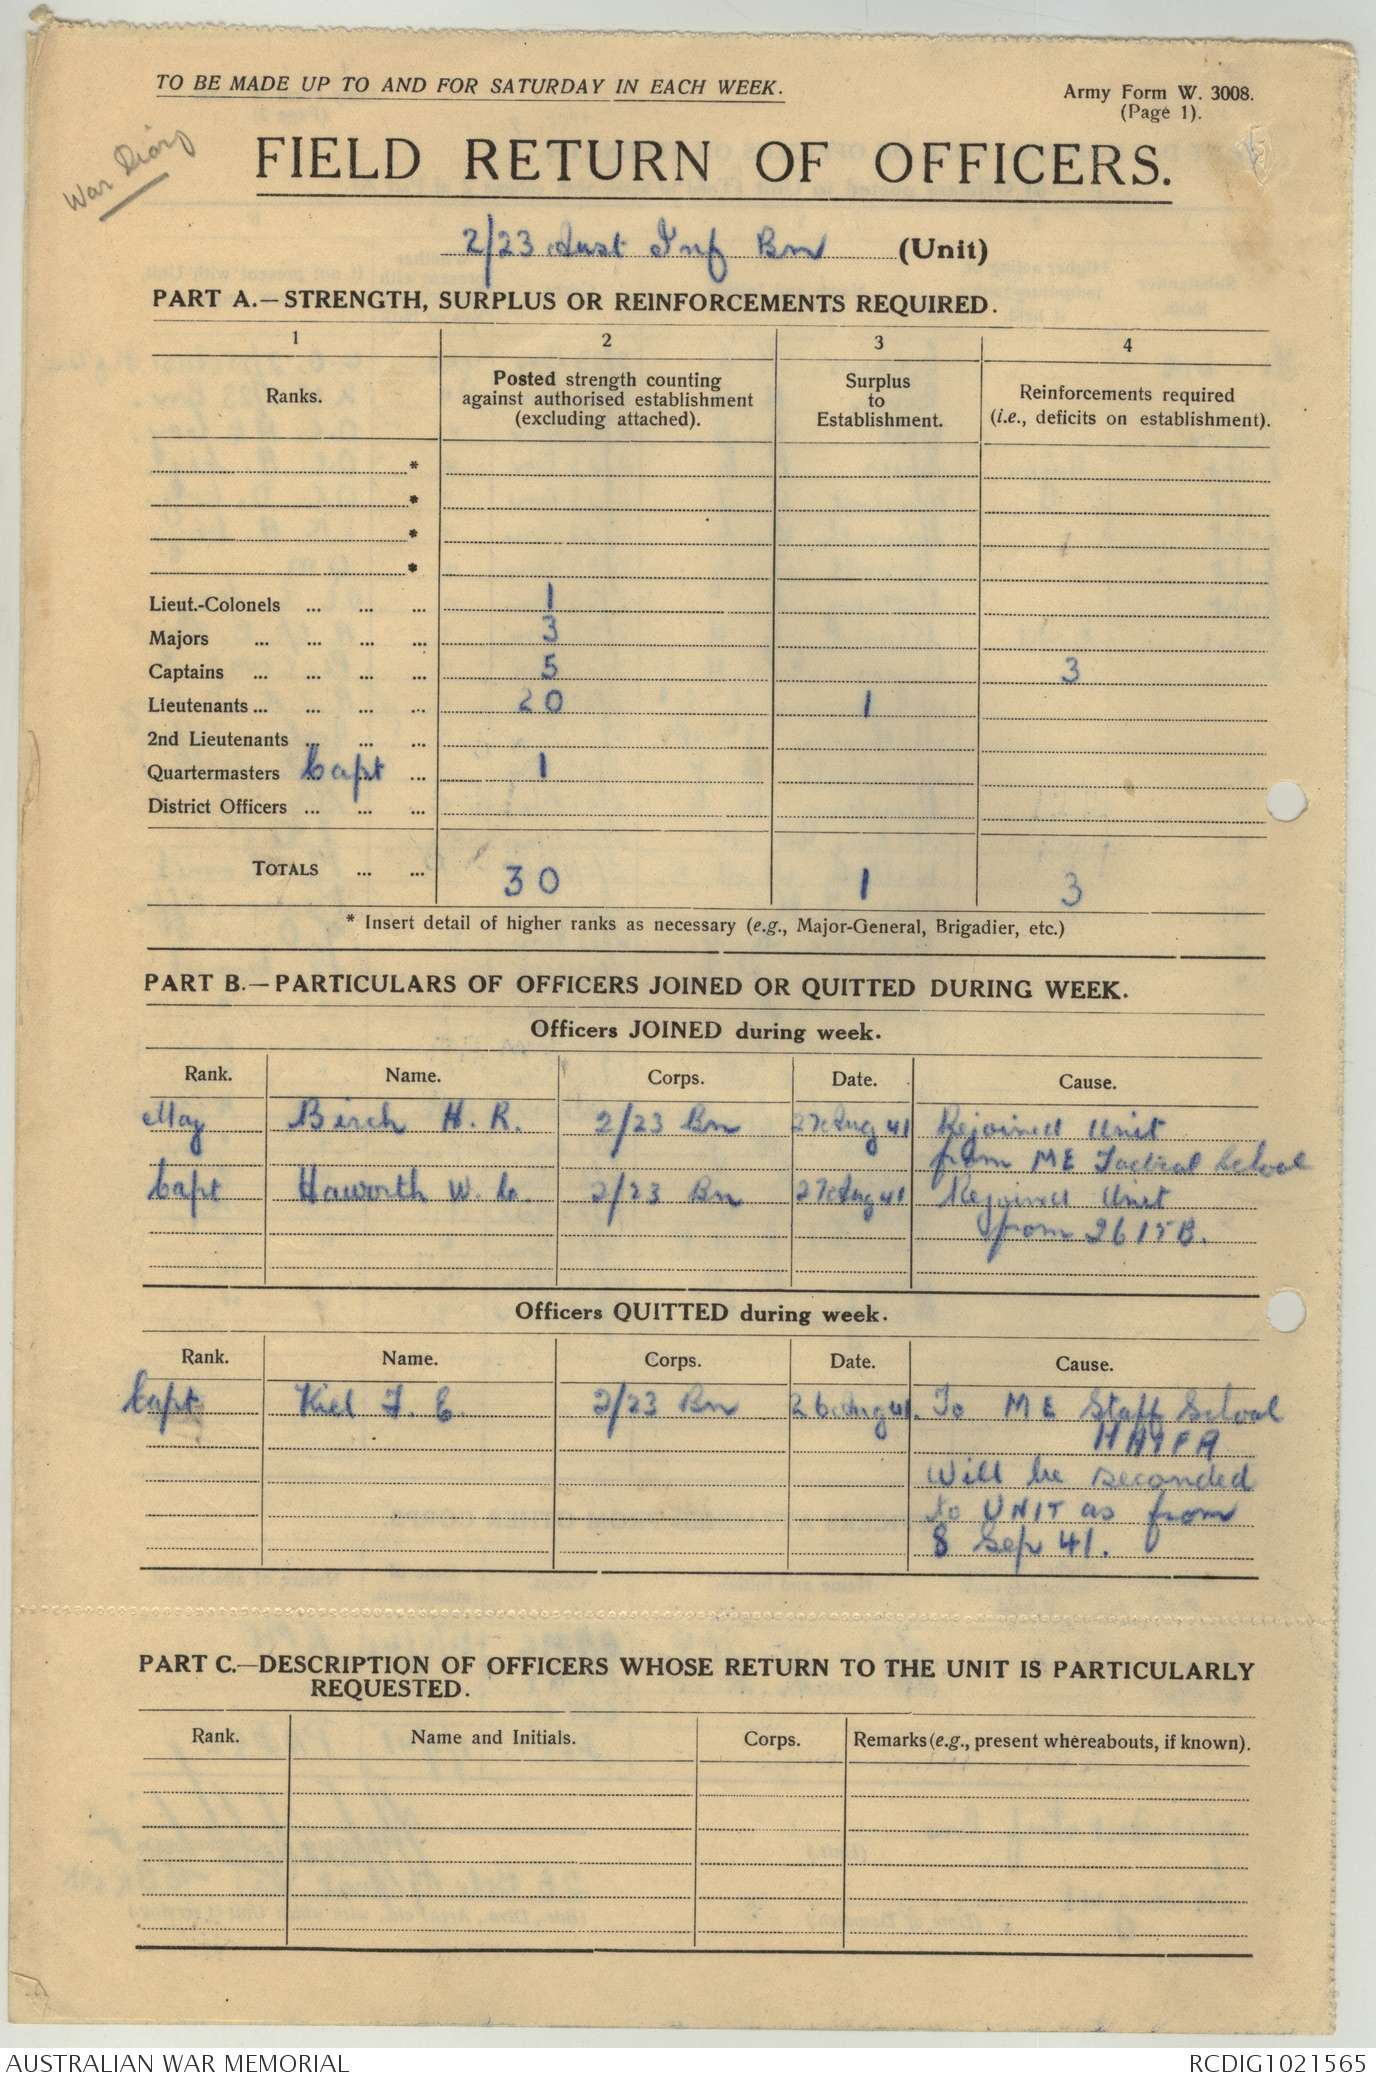 TO BE MADE UP TO AND FOR SATURDAY IN EACH WEEK.
Army Form W. 3008.
(Page 1).
War Diary
FIELD RETURN OF OFFICERS.
2/23 Aust Inf Bn (Unit)
PART A.—STRENGTH, SURPLUS OR REINFORCEMENTS REQUIRED.
1 2 3 4
Ranks.
Posted strength counting against authorised establishment (excluding attached).
Surplus to Establishment.
Reinforcements required (i.e., deficits on establishment).
*
*
*
*
Lieut.-Colonels ... ... ... 1
Majors ... ... ... ... 3
Captains ... ... ... ... 5 3
Lieutenants ... ... ... ... 20 1
2nd Lieutenants ... ... ...
Quartermasters Capt ... 1
District Officers ... ... ...
TOTALS ... ... 30 1 3
* Insert detail of higher ranks as necessary (e.g., Major-General, Brigadier, etc.)
PART B.—PARTICULARS OF OFFICERS JOINED OR QUITTED DURING WEEK.
Officers JOINED during week.
Rank. Name. Corps. Date. Cause.
Maj Birch H. R. 2/23 Bn 27 Aug 41 Rejoined Unit
from ME Tactical School
Capt Haworth W. C. 2/23 Bn 27 Aug 41 Rejoined Unit
from 26 ITB.
Officers QUITTED during week.
Rank. Name. Corps. Date. Cause.
Capt Kiel F. E. 2/23 Bn 26 Aug 41. To ME Staff School
HAIFA
Will be seconded
to UNIT as from
8 Sep 41.
PART C.—DESCRIPTION OF OFFICERS WHOSE RETURN TO THE UNIT IS PARTICULARLY
REQUESTED.
Rank. Name and Initials. Corps. Remarks (e.g., present whereabouts, if known).
AUSTRALIAN WAR MEMORIAL
RCDIG1021565